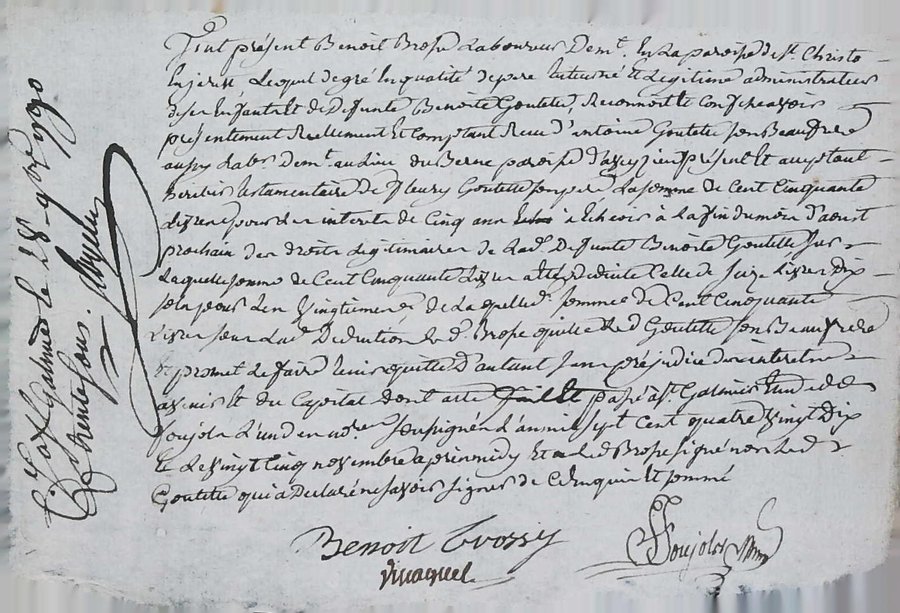 présent Benoit Laboureur Demt. En La paroisse de St. Christo
En Jarest, Lequel de gré En qualité de pere tuteur né Et Legitime administrateur
de ses Enfants Et de Deffunte Benoite Goutelle, Reconnoit Et Confesse avoir
présentement Reellement Et comptant Receu D'antoine Goutelle Son Beaufrere
aussy Labr. Demt. au Lieu du paroisse présent Et acceptant
heritier testamentaire de fleury Goutelle Son pere La somme de Cent Cinquante
Livres pour Les interets de Cinq ans a Echeoir a La fin du mois d'aoust
prochain des droits Legitimaires de Lad. Deffunte Benoite Goutelle Sur
Laquelle somme de Cent Cinquante Livres a été déduite Celle de Seize Livres Dix
sols pour Les Vingtiemes de Laquelle somme de Cent Cinquante
Livres Sous Lad. Deduction Led. quitte Led. Goutelle Son Beaufrere
Et promet Le faire tenir quitte d'autant Sans préjudice des interets a
avenir Et du Capital dont acte passé a St. Galmier Etude de
Soujols L'un des nores. Soussignés L'an mil Sept Cent quatre Vingt Dix
Et Le Vingt Cinq novembre apres midy Et a Led. signé non Led.
Goutelle qui a Declaré ne Savoir signer de Ce Enquis Et Sommé
Benoit Brossy
Soujols
a St. Galmier Le 28 9bre 1790
trente sous.